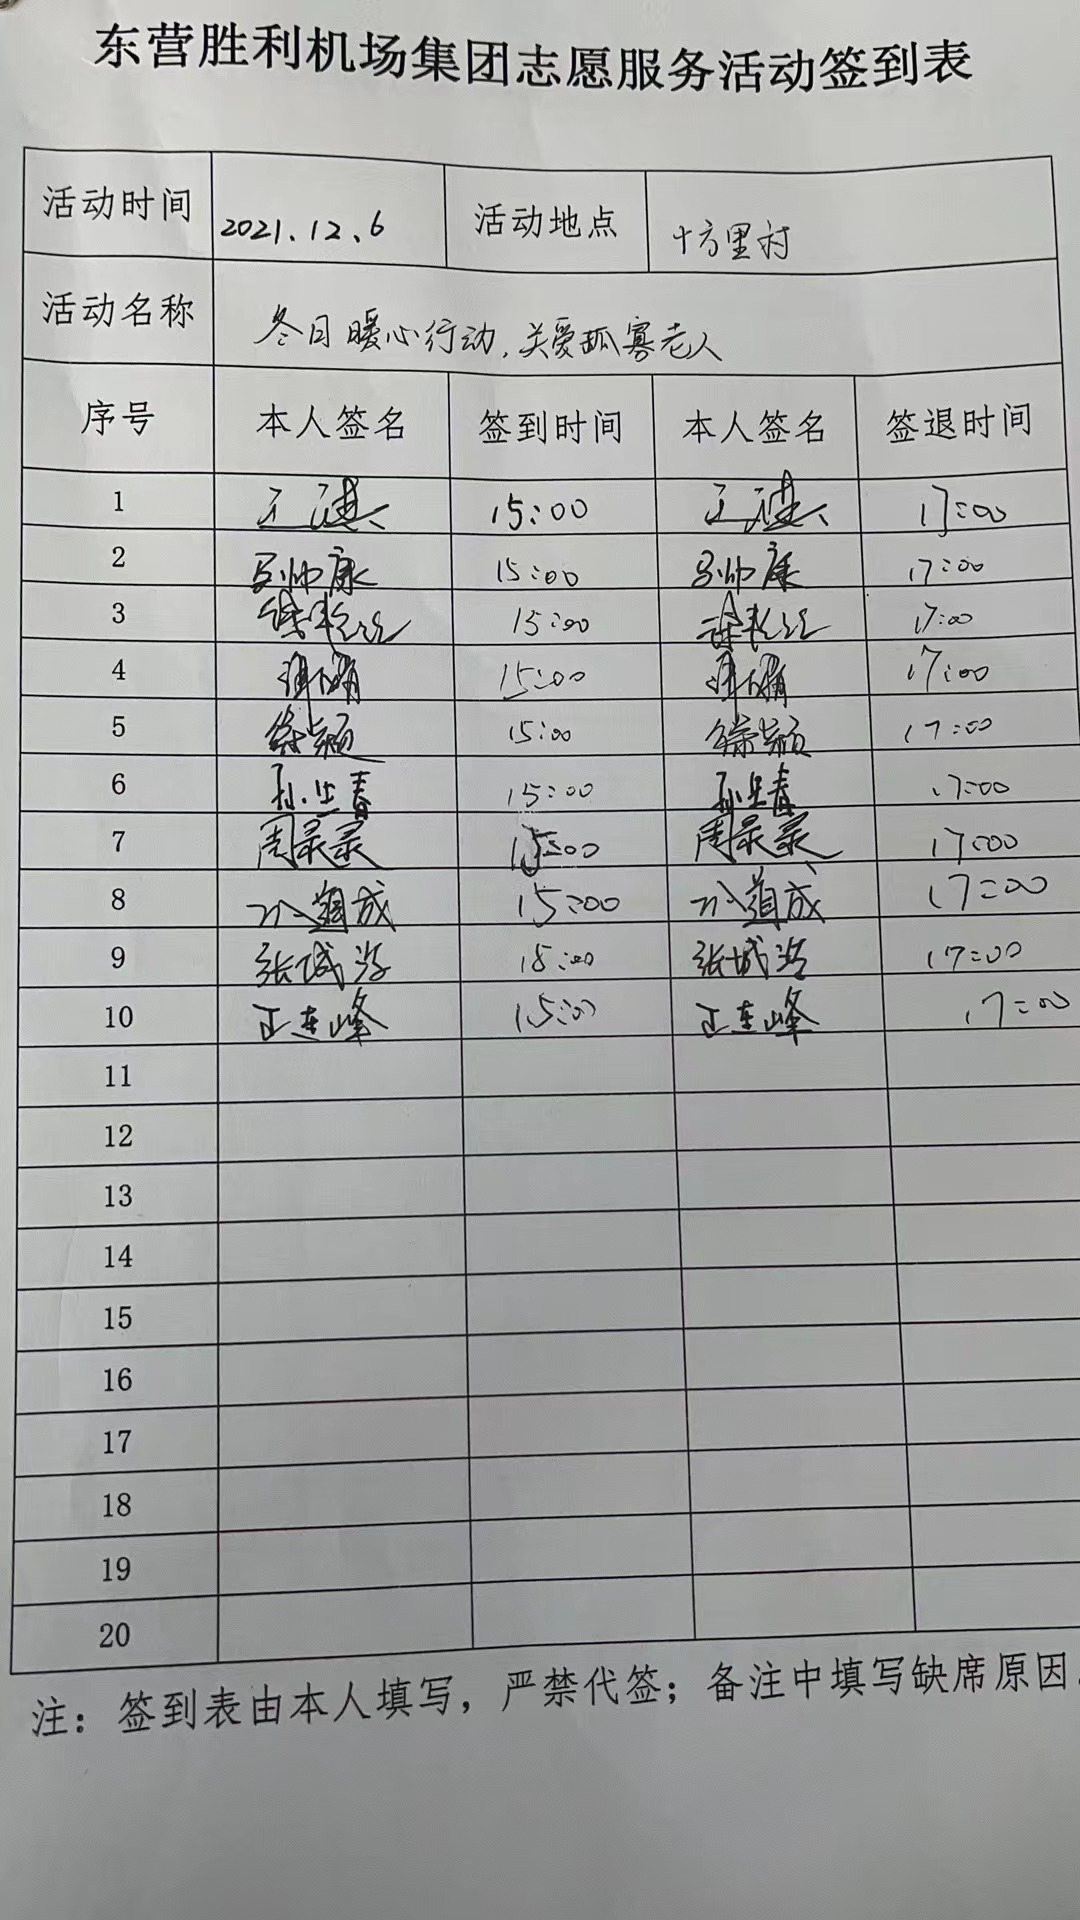 东营胜利机场集团志愿服务活动签到表
活动时间 2021.12.6 活动地点 十方里村
活动名称 冬日暖心行动,关爱孤寡老人
序号 本人签名 签到时间 本人签名 签退时间
1 15:00 17:00
2 马帅康 15:00 马帅康 17:00
3 15:00 17:00
4 15:00 17:00
5 徐颖 15:00 徐颖 17:00
6 孙生春 15:00 孙生春 17:00
7 周录录 15:00 周录录 17:00
8 15:00 17:00
9 张城 15:00 张城 17:00
10 王连峰 15:00 王连峰 17:00
11
12
13
14
15
16
17
18
19
20
注：签到表由本人填写，严禁代签；备注中填写缺席原因